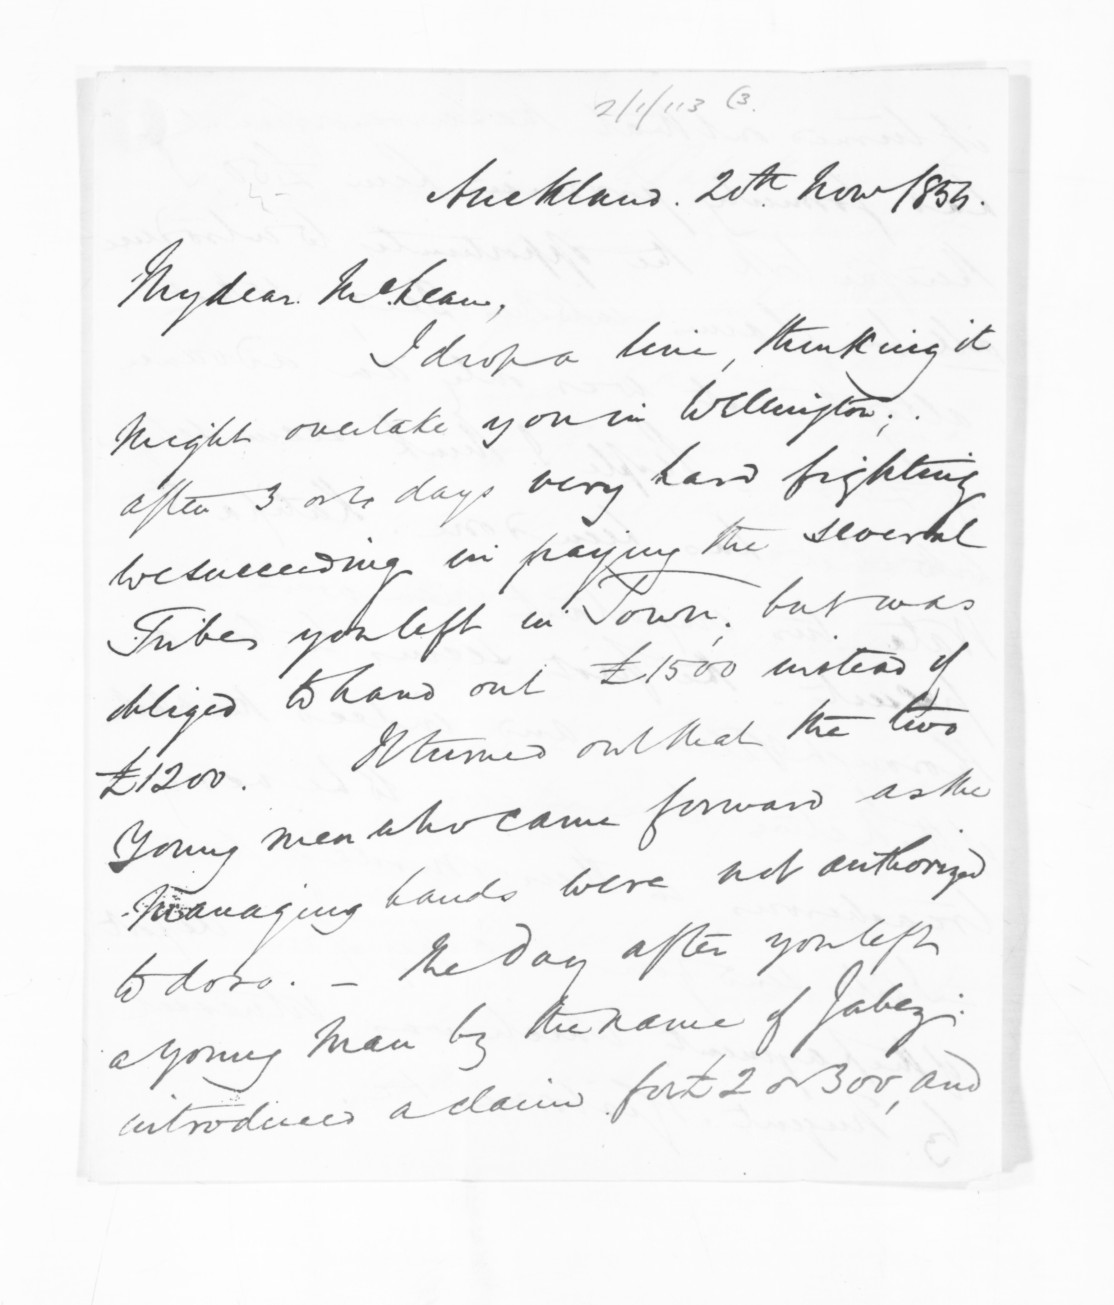 2/1/113 (3.
Auckland. 20th Novr 1854.
My dear McLean,
I drop a line, thinking it
might overtake you in Wellington;
after 3 or 4 days very hard fighting
we succeeding in paying the several
Tribes you left in Town; but was
obliged to hand out £1500 instead of
£1200. It turned out that the two
Young men who came forward as the
managing hands were not authorized
to do so. — The day after you left
a young man by the name of Jabez:
introduced a claim for £2 or 300, and
3